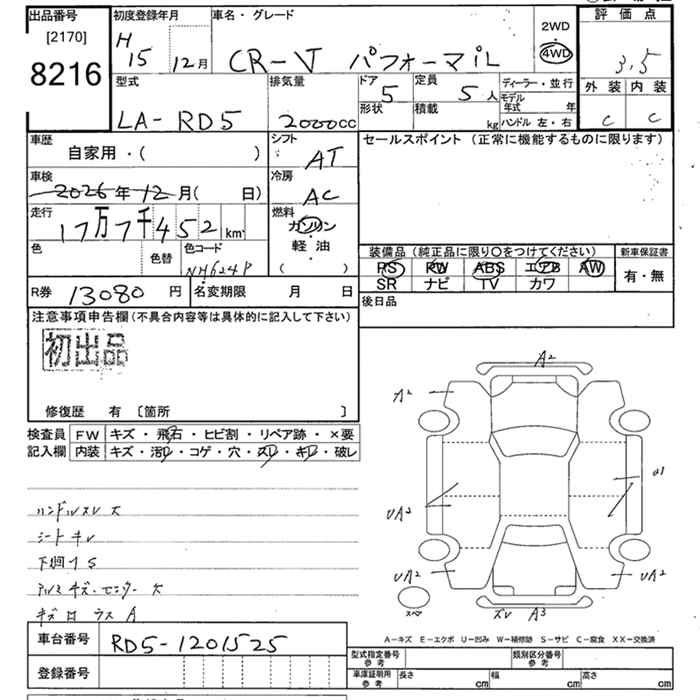 出品番号 初度登録年月 車名・グレード 2WD 評価点
[2170] H 15 12月 CR-V パフォーマiL 4WD 3.5
8216
型式 排気量 ドア 定員 ディーラー・並行 外装 内装
LA-RD5 2000cc 5 5人 モデル年式 年 C C
形状 積載 kg ハンドル 左・右
車歴 シフト セールスポイント(正常に機能するものに限ります)
自家用・( ) AT
車検 冷房
2026年12月( 日) AC
走行 燃料
17万7千452km ガソリン
軽・油
( )
色 色替 色コード
NH624P
装備品(純正品に限り〇をつけてください) 新車保証書
PS PW ABS エアB AW 有・無
SR ナビ TV カワ
R券 13080円 名変期限 月 日
後日品
注意事項申告欄(不具合内容等は具体的に記入して下さい)
初出品
修復歴 有 [箇所 ]
検査員 FW キズ・飛石・ヒビ割・リペア跡・×要
記入欄 内装 キズ・汚レ・コゲ・穴・スレ・キレ・破レ
ハンドルスレ大
シートキレ
下廻りS
A2
A2
U1
UA2
UA2
UA2
スペ
ズレ A3
A-キズ E-エクボ U-凹み W-補修跡 S-サビ C-腐食 XX-交換済
車台番号 RD5-1201525
登録番号
型式指定番号 参考 類別区分番号 参考
車庫証明用 参考 長さ cm 幅 cm 高さ cm